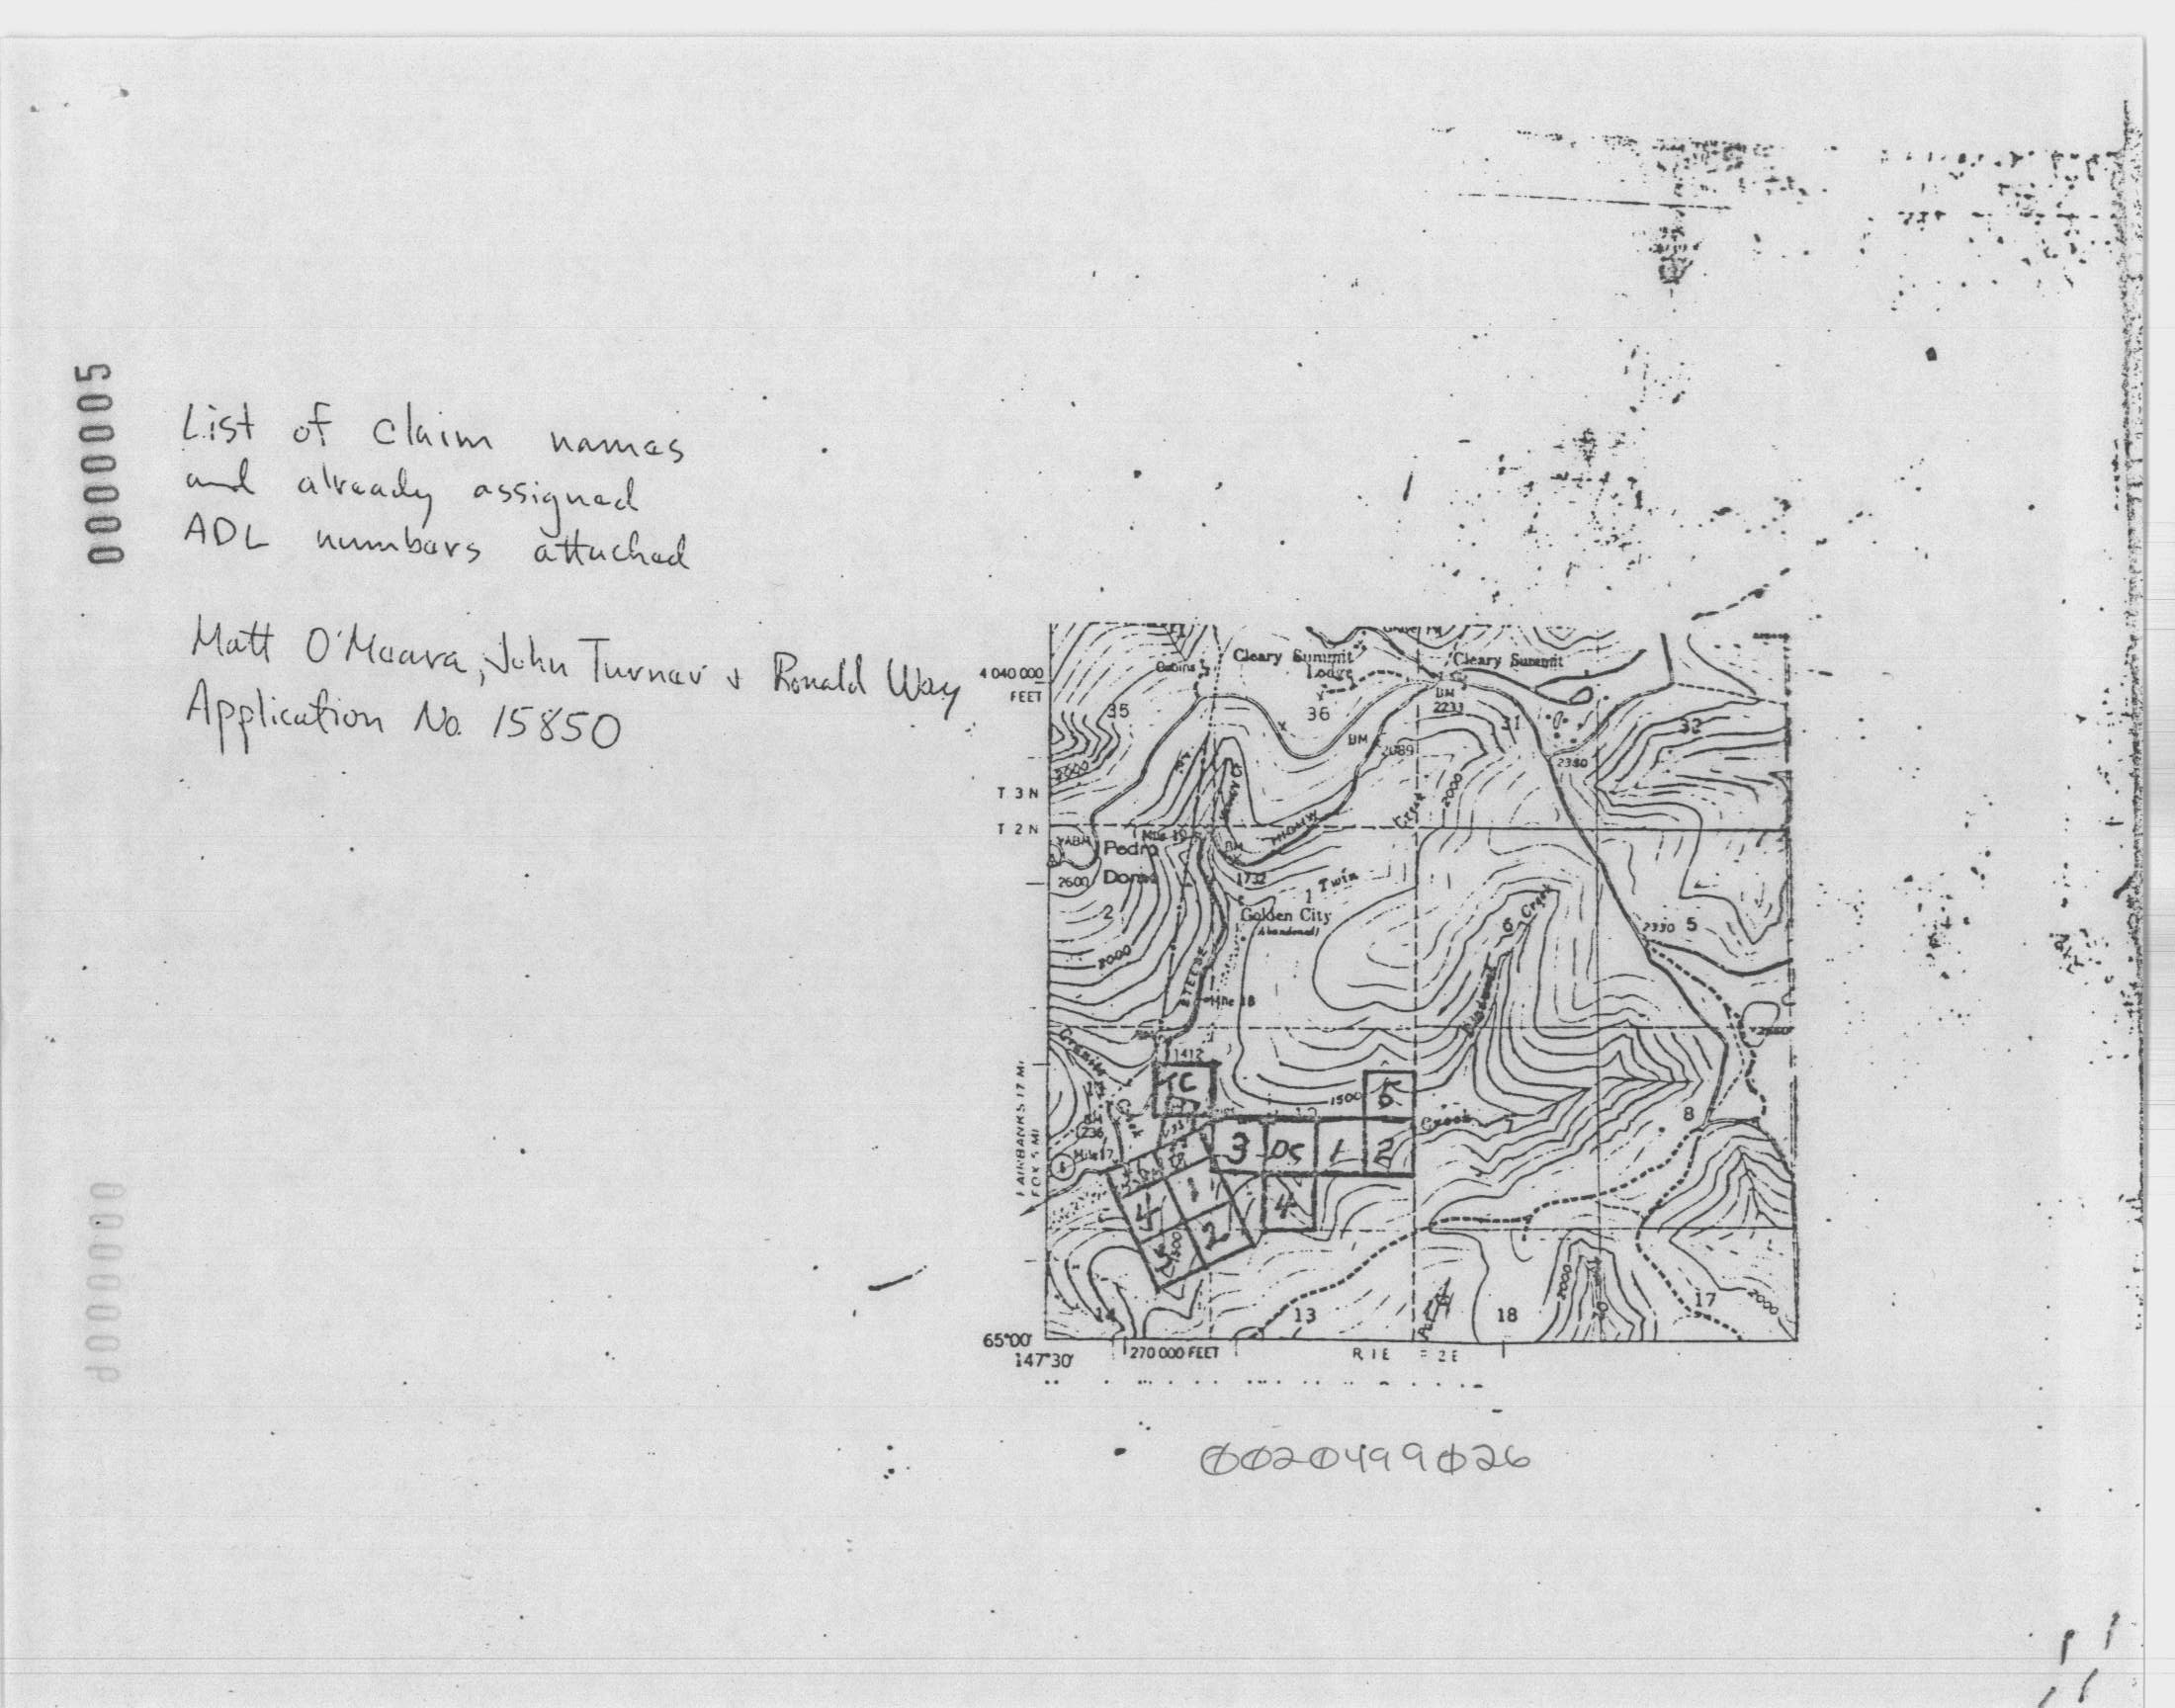 0000005
List of claim names
and already assigned
ADL numbers attached
Matt O'Meara, John Turner & Ronald Way
Application No. 15850
4 040 000
FEET
Cabins
Cleary Summit
Lodge
Cleary Summit
BM
2233
35
36
31
32
BM
2089
2380
2600
2000
T 3 N
T 2 N
Pedro
Dome
2600
BM
1732
Twin
Creek
1
Golden City
(Abandoned)
2
6
Creek
2330
5
2000
STEESE
Mile 18
Granite
Creek
1412
TC
5
1500
Creek
8
3
DS
1
2
4
1
4
2
1500
FAIRBANKS 17 MI
FOX 5 MI
Mile 17
14
13
18
17
2000
2000
65°00'
147°30'
270 000 FEET
R 1 E
2 E
0020499026